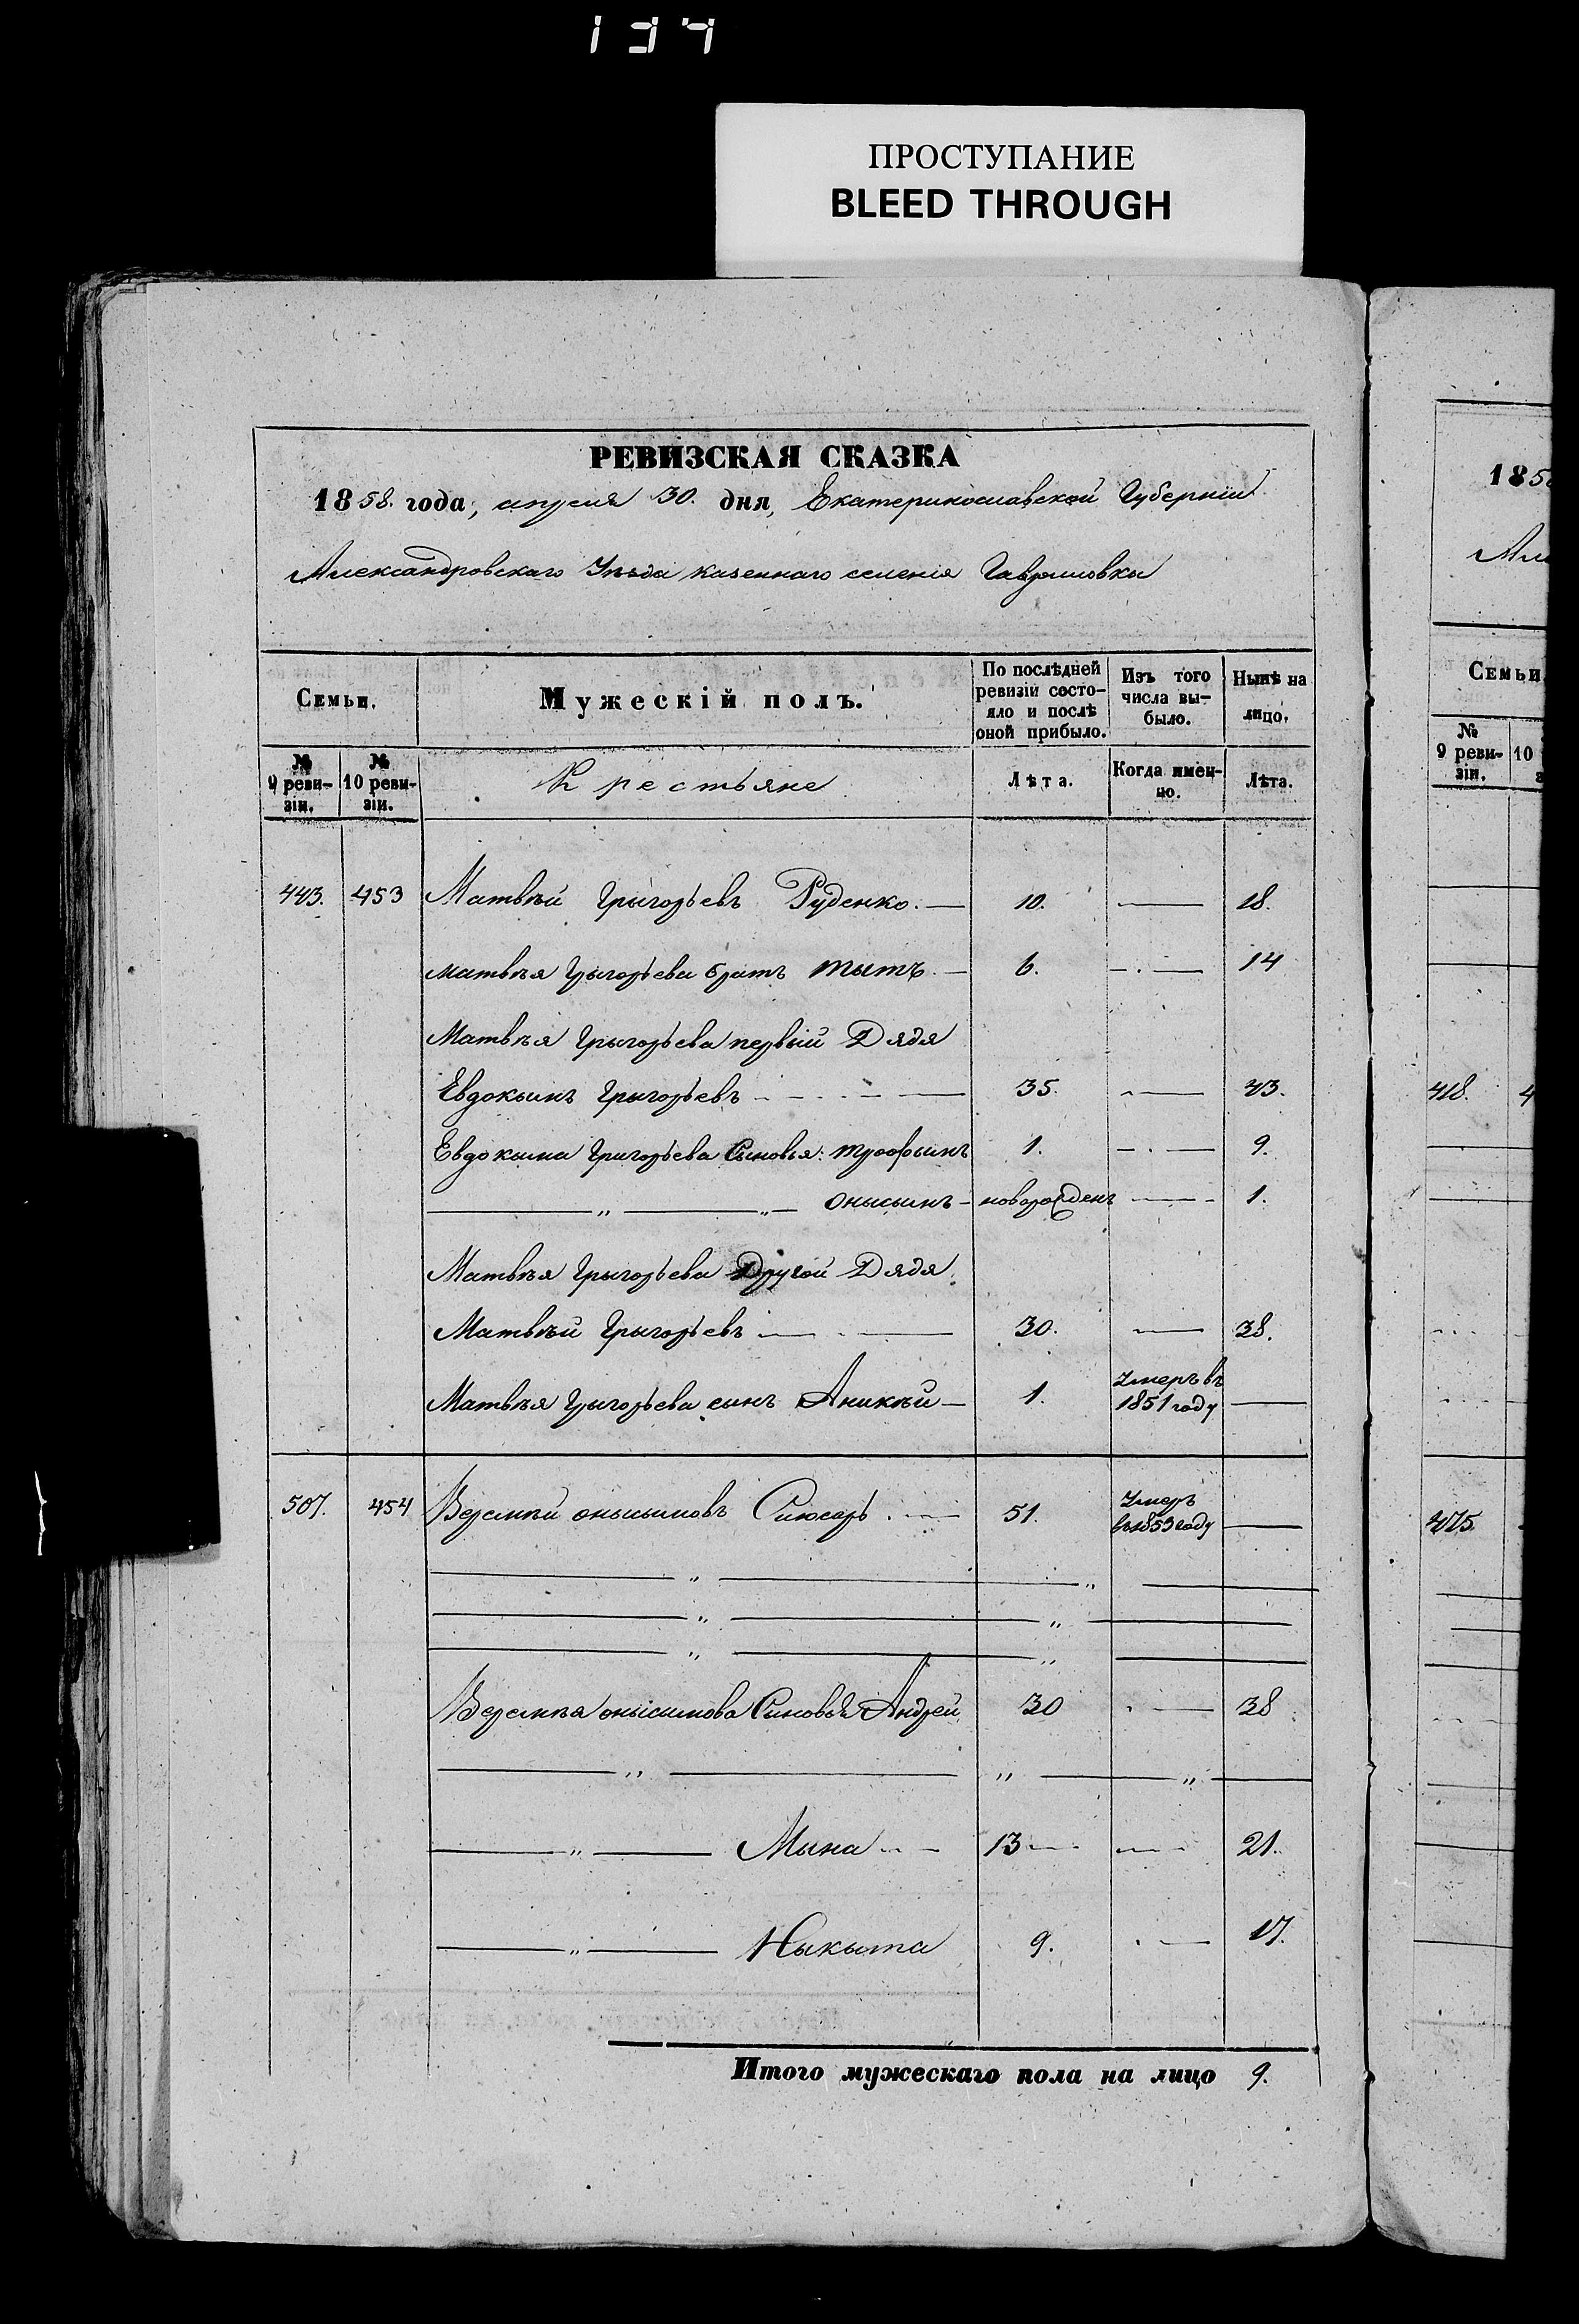 134
ПРОСТУПАНИЕ
BLEED THROUGH
РЕВИЗСКАЯ СКАЗКА
1858. года, апреля 30. дня, Екатеринославской Губерніи
Александровскаго Уѣзда казеннаго селенія Гавриловки
Семьи. Мужескій полъ. По послѣдней ревизіи состояло и послѣ оной прибыло. Изъ того числа выбыло. Нынѣ на лицо.
№ 9 ревизіи. № 10 ревизіи. Крестьяне Лѣта. Когда именно. Лѣта.
443. 453 Матвѣй Грыгорьевъ Руденко. — 10. — 18.
Матвѣя Грыгорьева братъ Тытъ — 6. — 14
Матвѣя Грыгорьева первый Дядя
Евдокымъ Грыгорьевъ — 35. — 43.
Евдокыма Григорьева Сыновья: Трофымъ 1. — 9.
— „ — „ — Онысымъ — новорожденъ — 1.
Матвѣя Грыгорьева Другой Дядя
Матвѣй Грыгорьевъ — 30. — 38.
Матвѣя Грыгорьева сынъ Аникѣй — 1. Умеръ въ 1851 году —
507. 454 Веремѣй Онысымовъ Слюсарь. — 51. Умеръ въ 1853 году —
— „ — „ —
— „ — „ —
— „ — „ —
Веремѣя Онысимова Сыновья Андрей 30 — 38
— „ — „ — „ —
— „ — Мына — 13 — — 21.
— „ — Ныкыта 9. — 17.
Итого мужескаго пола на лицо 9.
185
Але
Семьи
№ 9 ревизіи. 10
418. 4
475.